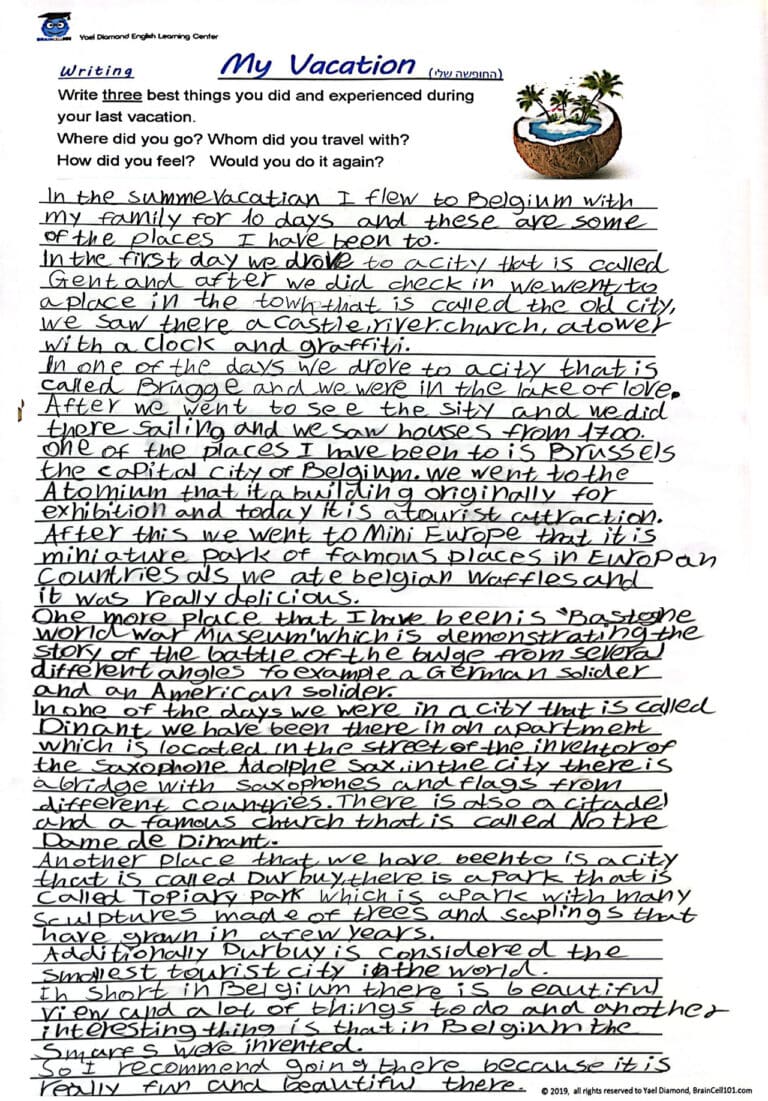 BRAINCELL101
Yael Diamond English Learning Center
Writing
My Vacation (החופשה שלי)
Write three best things you did and experienced during
your last vacation.
Where did you go? Whom did you travel with?
How did you feel? Would you do it again?
In the summe vacation I flew to Belgium with
my family for 10 days and these are some
of the places I have been to.
In the first day we drove to a city that is called
Gent and after we did check in we went to
a place in the town that is called the old city,
we saw there a castle, river, church, a tower
with a clock and graffiti.
In one of the days we drove to a city that is
called Brugge and we were in the lake of love.
After we went to see the sity and we did
there sailing and we saw houses from 1700.
one of the places I have been to is Brussels
the capital city of Belgium. we went to the
Atomium that it a building originally for
exhibition and today it is a tourist attraction.
After this we went to Mini Europe that it is
miniature park of famous places in Europan
countries als we ate belgian waffles and
it was really delicious.
One more place that I have been is "Bastogne
world war Museum" which is demonstrating the
story of the battle of the bulge from several
different angles to example a German solider
and an American solider.
In one of the days we were in a city that is called
Dinant, we have been there in an apartment
which is located in the street of the inventor of
the saxophone Adolphe sax. in the city there is
a bridge with saxophones and flags from
different countries. There is also a citadel
and a famous church that is called Notre
Dame de Dinant.
Another place that we have been to is a city
that is called Durbuy, there is a park that is
called Topiary park which is a park with many
sculptures made of trees and saplings that
have grown in a few years.
Additionally Durbuy is considered the
smallest tourist city in the world.
In short in Belgium there is beautiful
view and a lot of things to do and another
interesting thing is that in Belgium the
Smarfs were invented.
So I recommend going there because it is
really fun and beautiful there.
© 2019, all rights reserved to Yael Diamond, BrainCell101.com